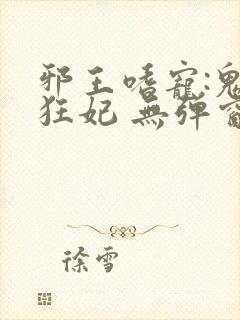 邪王嗜寵:鬼
狂妃 無弹窗
徐雪